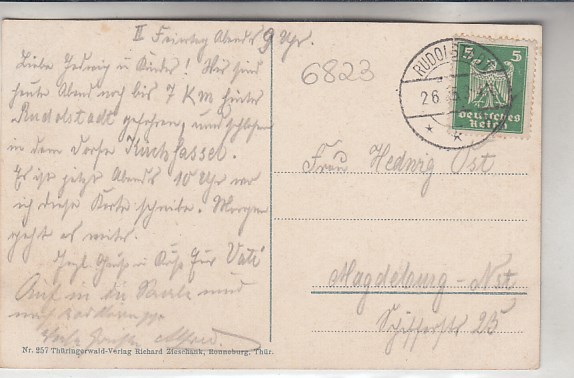 II Freitag Abends 9 Uhr.
Liebe Hedwig u Kinder! Wir sind
heute Abend noch bis 7 KM hinter
Rudolstadt gefahren, und schlafen
in dem Dorfe
Es ist jetzt Abends 10 Uhr wo
ich diese Karte schreibe. Morgen
geht es weiter.
Herzl Grüße u Küße Euer Vati
Auf in die Saale und
6823
RUDOLST
26
5 5
Deutsches
Reich
* * k
Frau Hedwig Ost
Magdeburg-
23
Nr. 257 Thüringerwald-Verlag Richard Zieschank, Ronneburg, Thür.